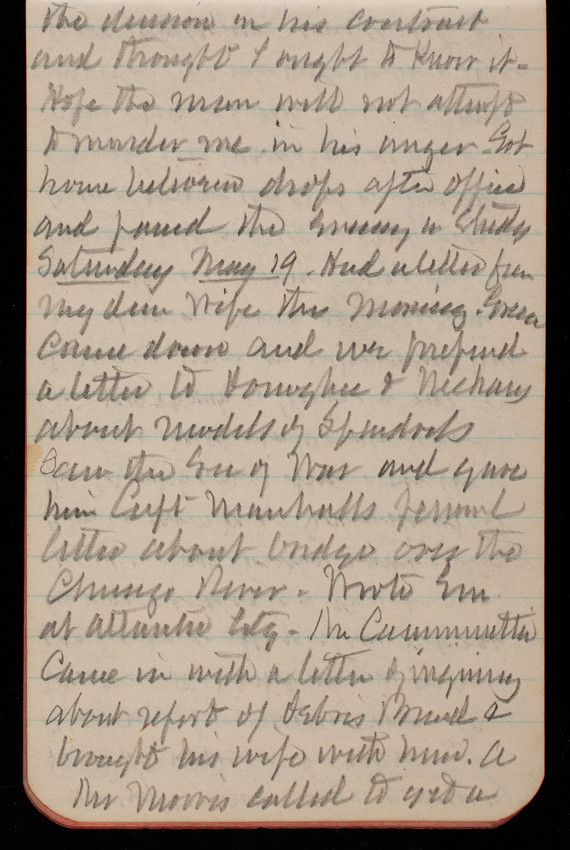 the decision in his contract
and thought I ought to know it -
Hope the man will not attempt
to murder me in his anger. Got
home between drops after office
and passed the evening in study
Saturday May 19. Had a letter from
my dear wife this morning. Green
came down and we prepared
a letter to Donoghue &
about models of Spandrels
Saw the Sec of War and gave
him Capt Marshalls personal
letter about bridge over the
Chicago River. Wrote Em
at Atlantic City - Mr
came in with a letter of inquiry
about report of Debris Board &
brought his wife with him. A
Mr Morris called to get a